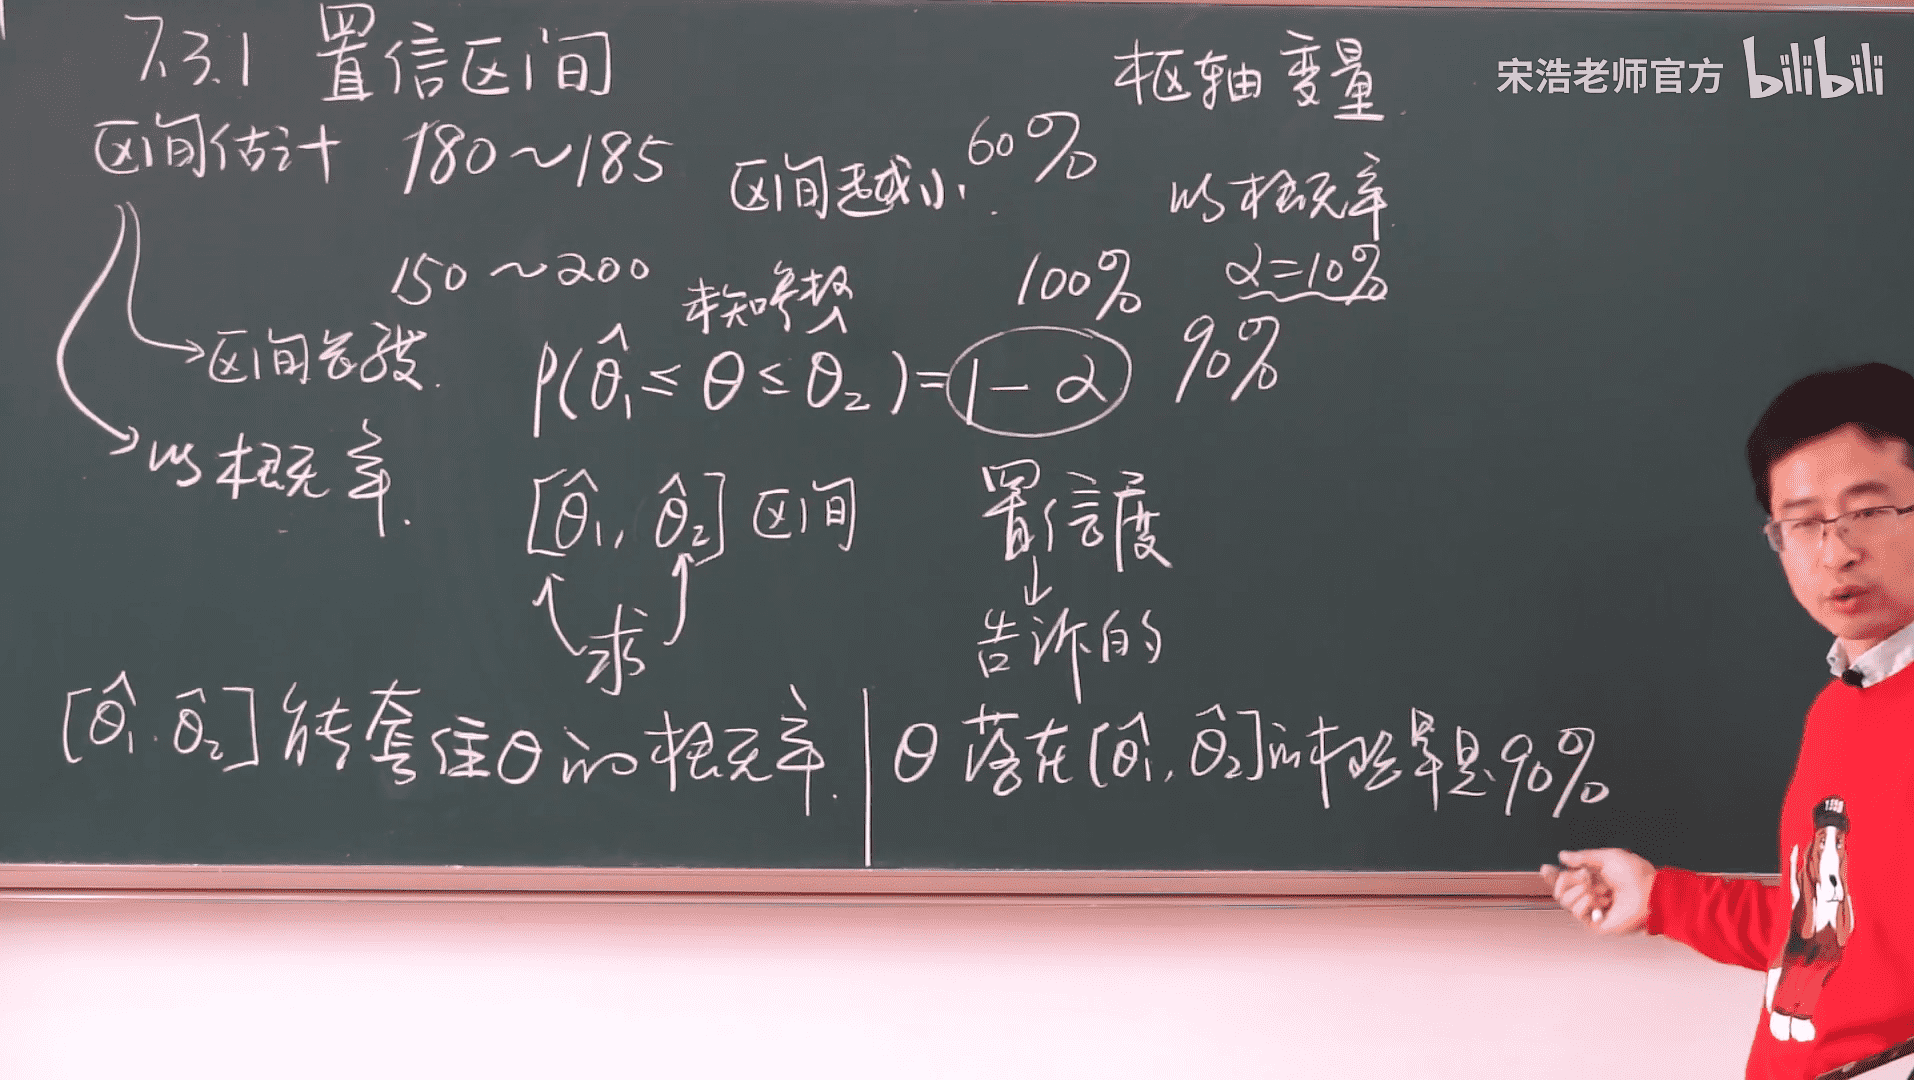 7.3.1 置信区间
枢轴变量
宋浩老师官方 bilibili
区间估计 180~185
区间越小 60%
以概率
α=10%
150~200
未知参数
100%
90%
区间长度.
P(θ̂₁≤θ≤θ̂₂)=1-α
以概率.
[θ̂₁, θ̂₂]区间
置信度
求
告诉的
[θ̂₁, θ̂₂]能套住θ的概率.
θ落在[θ̂₁, θ̂₂]的概率是90%